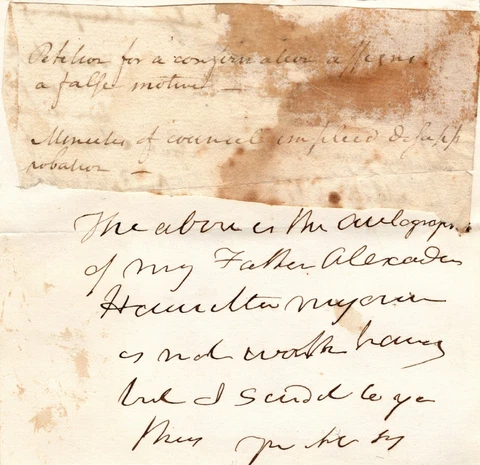 Petition for a confirmation assigns
a false motive —
Minutes of council implied disapp
robation —
The above is the autograph
of my Father Alexander
Hamilton my own
is not worth having
but I send to you
thus